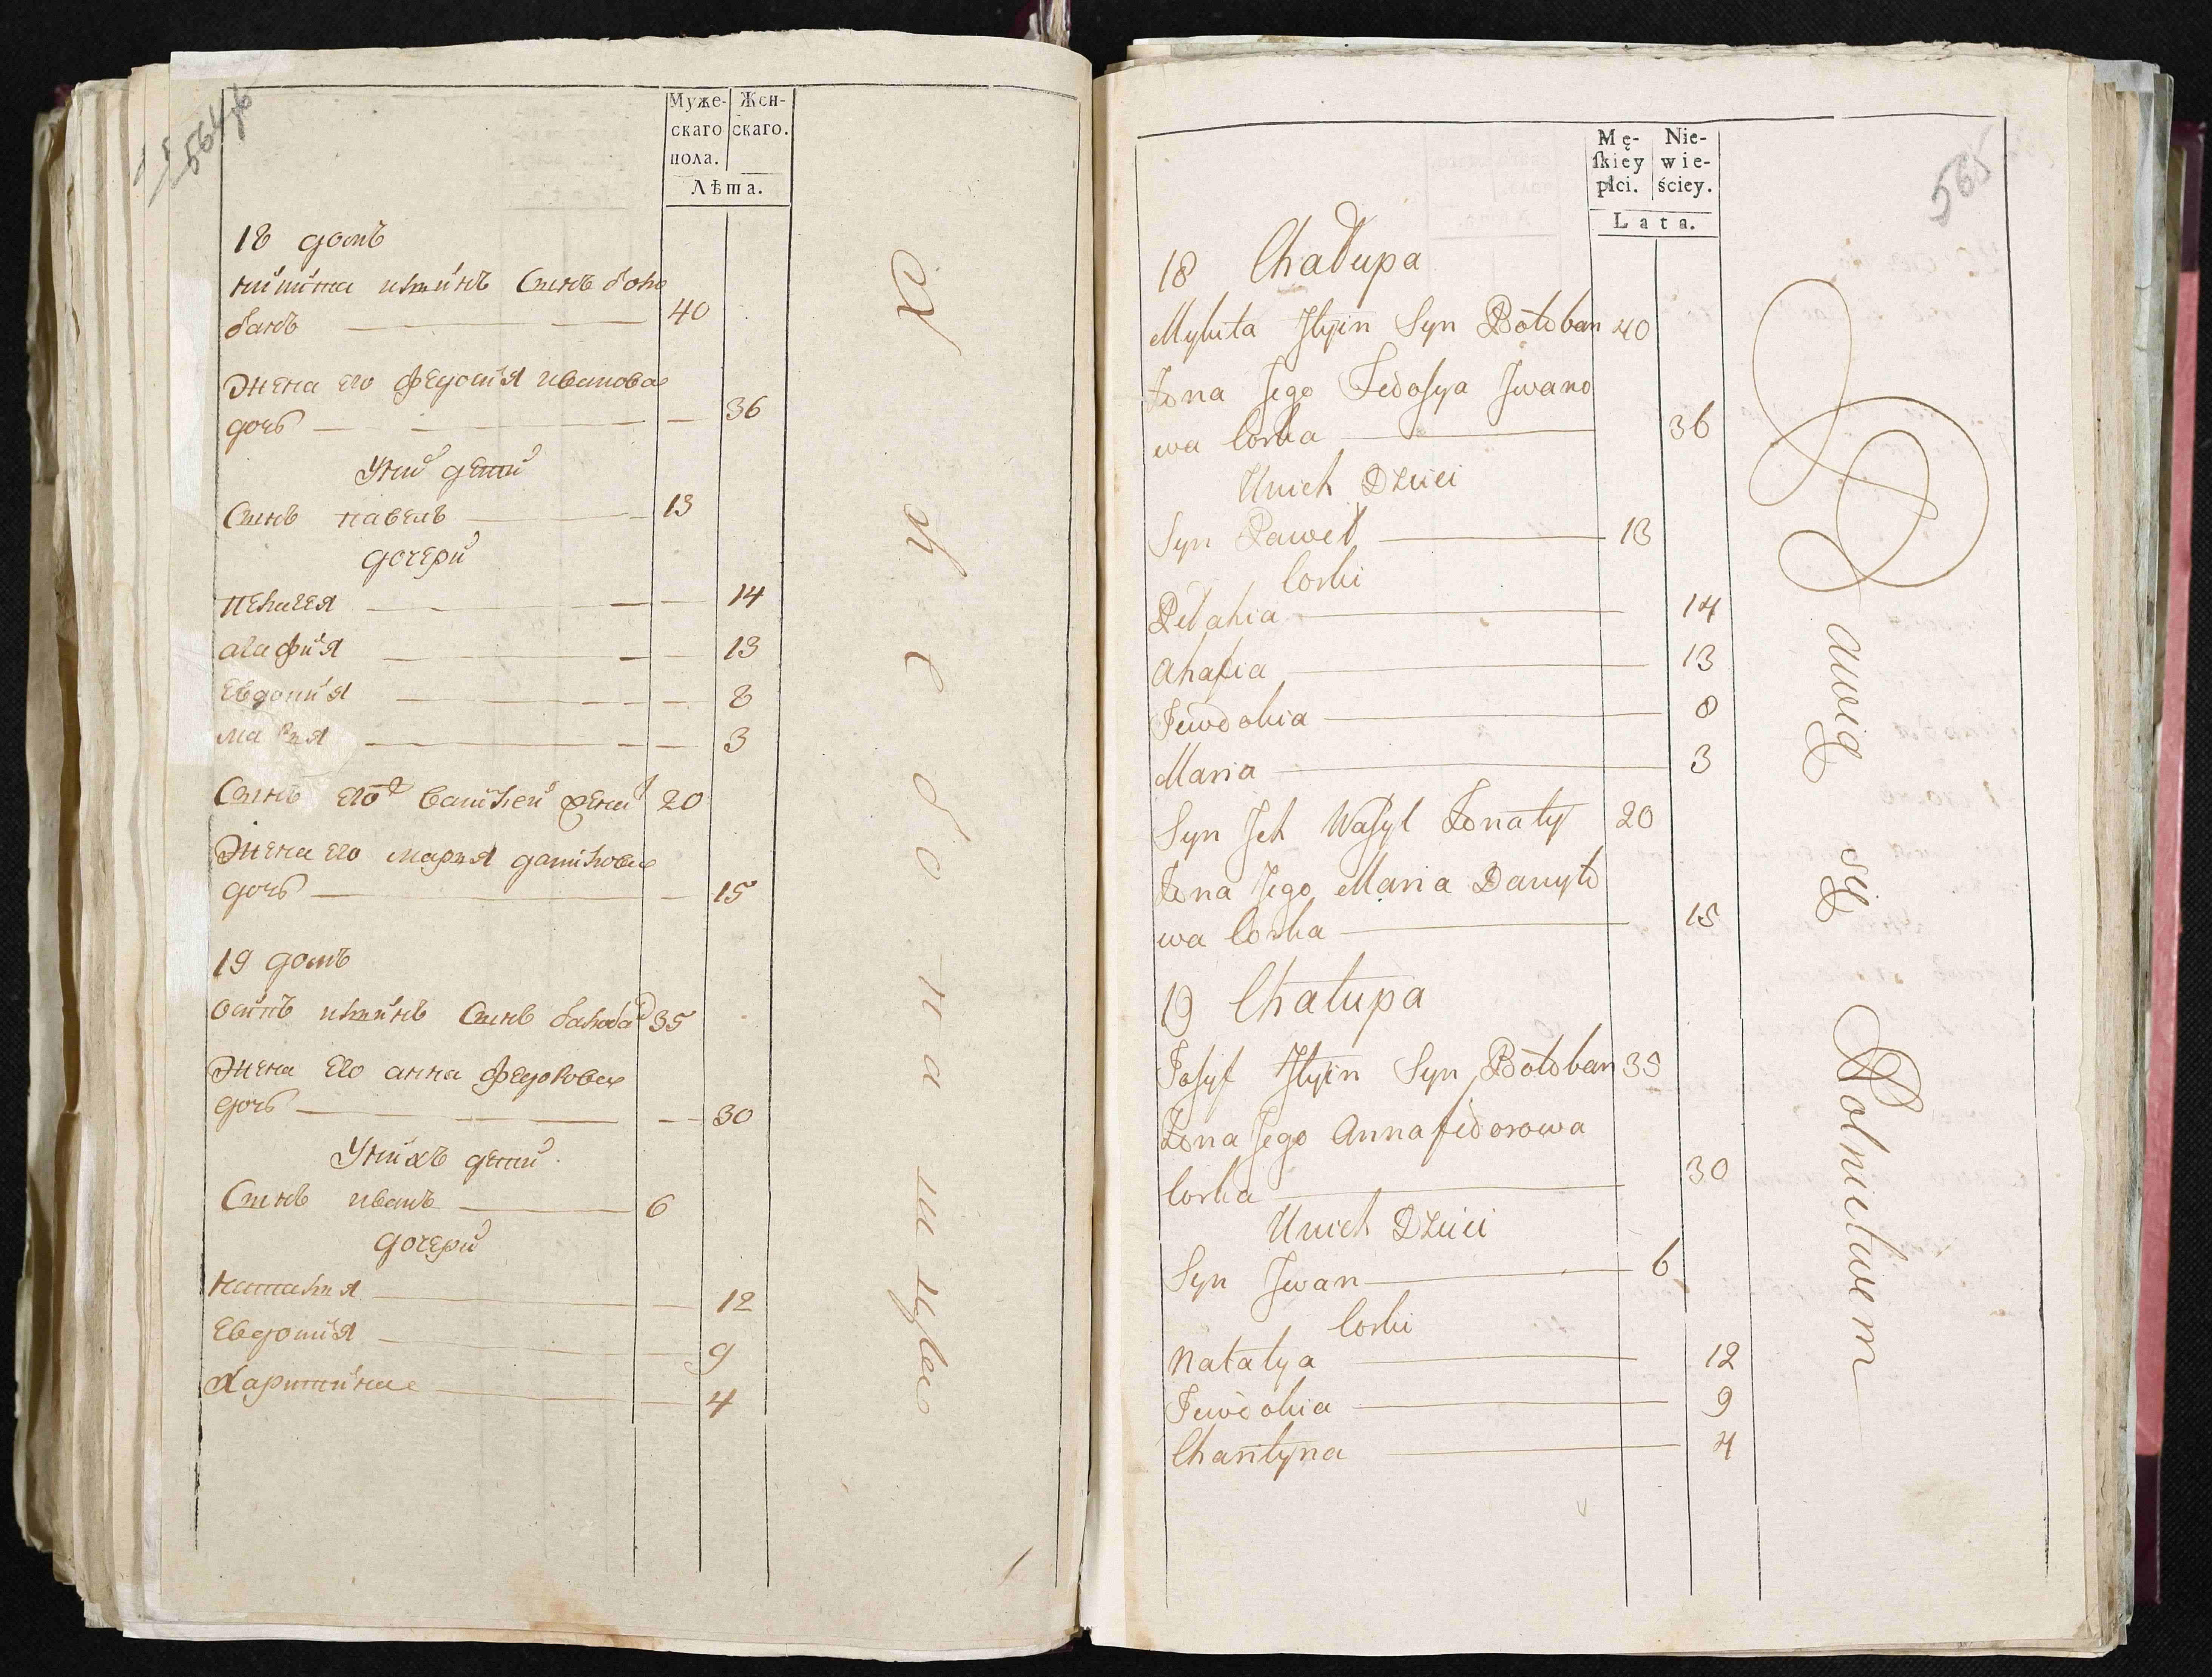 564
Муже-
скаго
пола.
Жен-
скаго.
Лѣта.
18 домъ
никита илиинъ Сынъ боло
банъ 40
жена его федосия иванова
дочь 36
У ни дети
Сынъ павелъ 13
дочери
пелагея 14
агафия 13
Евдокия 8
мария 3
Сынъ его василей жени 20
жена его мария данилова
дочь 15
19 домъ
осипъ илиинъ Сынъ балоба 35
жена его анна федорова
дочь 30
У нихъ дети
Сынъ иванъ 6
дочери
наталия 12
Евдокия 9
Харитина 4
565
Mę-
skiey
płci.
Nie-
wie-
ściey.
Lata.
18 Chałupa
Mykita Jlyin Syn Bołoban 40
Żona Jego Fedosya Jwano
wa Corka 36
Unich Dzieci
Syn Paweł 13
Corki
Pelahia 14
Ahafia 13
Jewdokia 8
Maria 3
Syn Jch Wasyl Żonaty 20
Żona Jego Maria Danyło
wa Corka 15
19 Chałupa
Josyf Jlyin Syn Bołoban 35
Żona Jego Anna Fedorowa
Corka 30
Unich Dzieci
Syn Jwan 6
Corki
Natalya 12
Jewdokia 9
Charytyna 4
Bawią się Rolnictwem